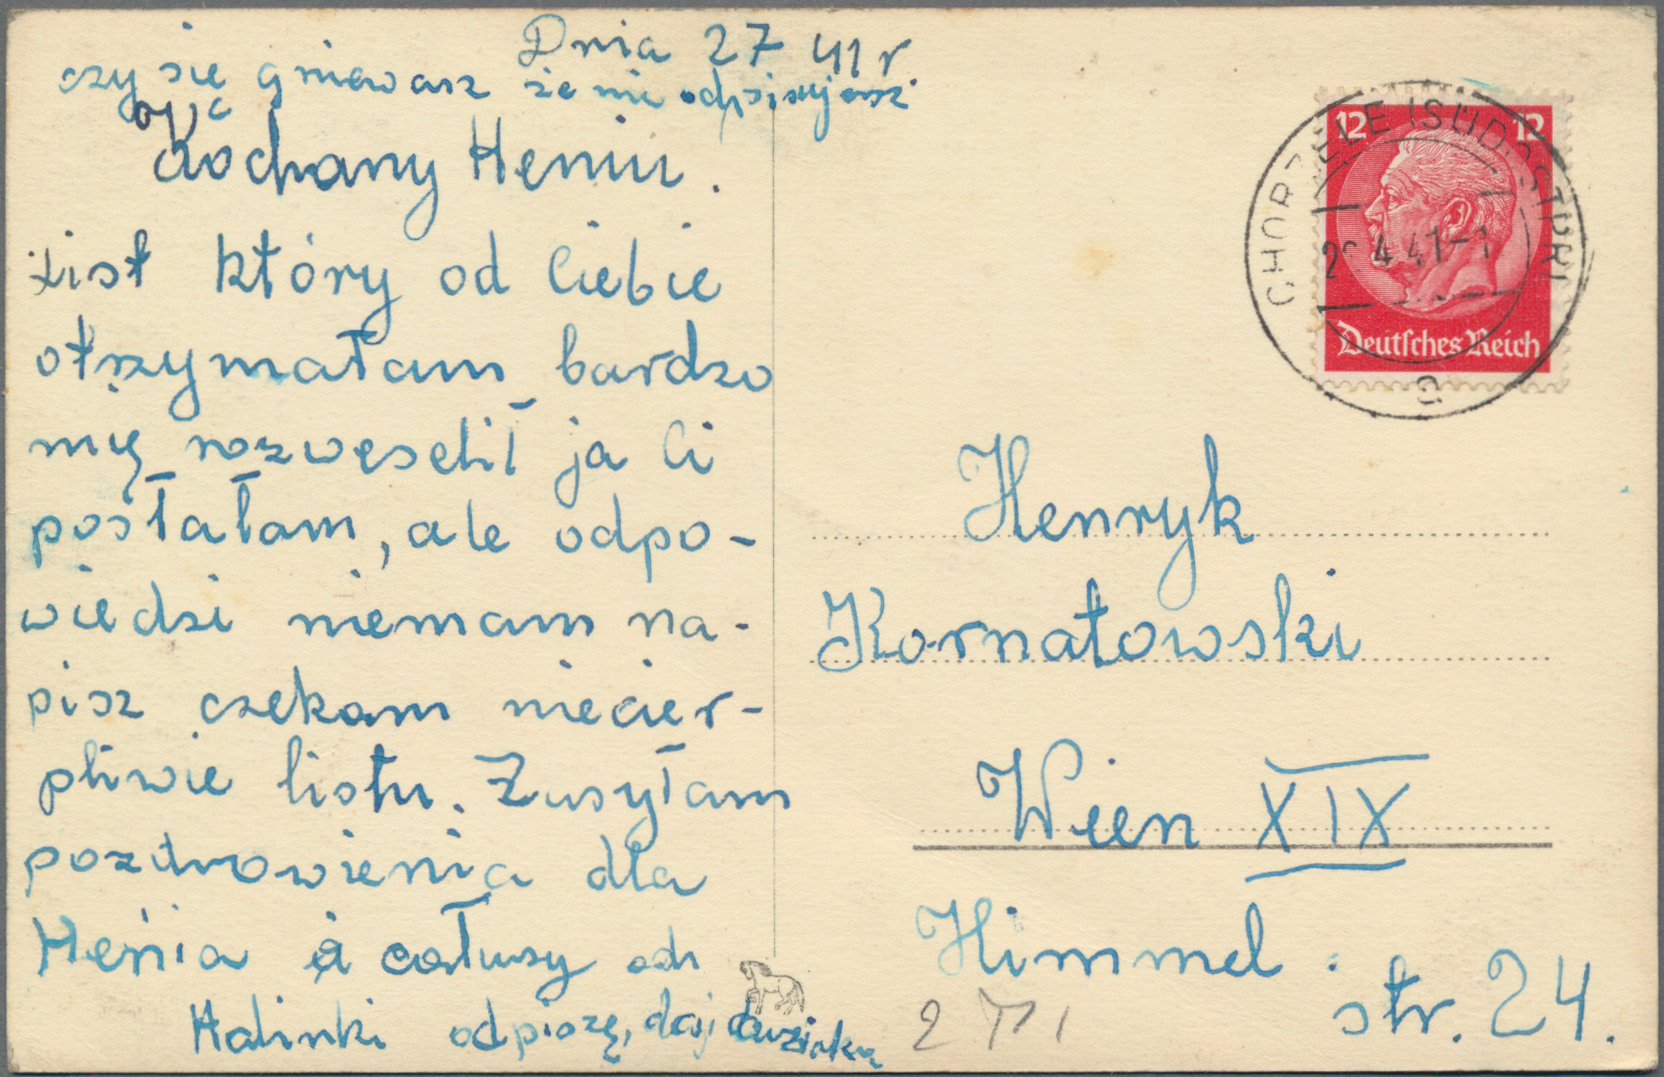 Dnia 27 41 r.
czy się gniewasz że nie odpisujesz
Kochany Heniu.
List który od Ciebie
otrzymałam bardzo
mię rozweselił ja Ci
posłałam, ale odpo-
wiedzi niemam na-
pisz czekam niecier-
pliwie listu. Zasyłam
pozdrowienia dla
Henia i całusy od
Halinki odpiszę, daj
12 12
CHORZELE (SÜDOSTPR)
4.41-1
Deutsches Reich
G
Henryk
Kornatowski
Wien XIX
Himmel :
str. 24.